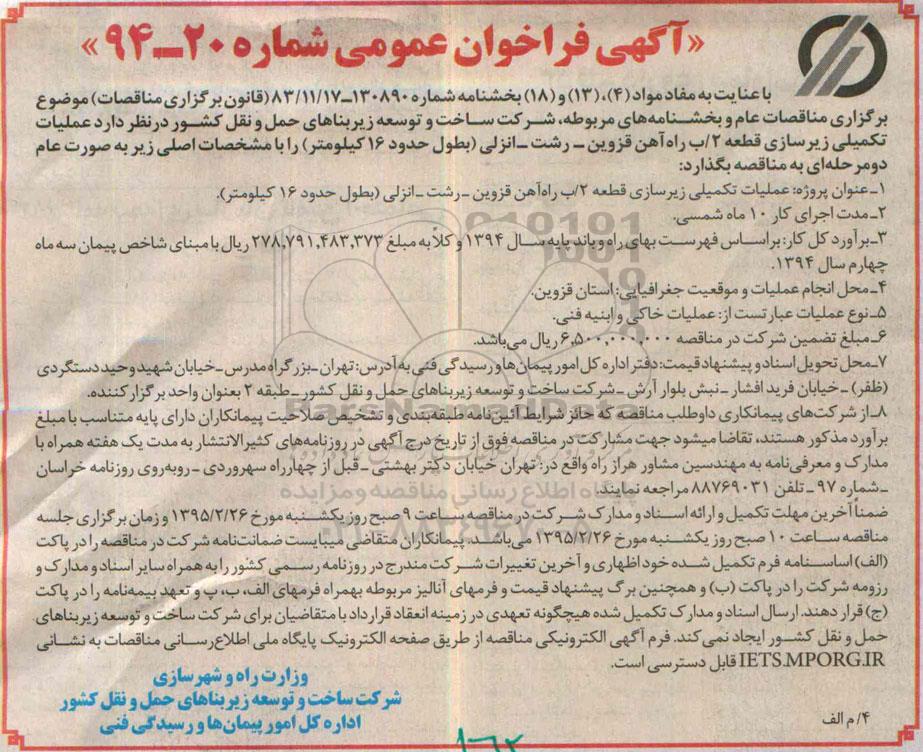 «آگهی فراخوان عمومی شماره ۲۰ـ۹۴»
با عنایت به مفاد مواد (۴)، (۱۳) و (۱۸) بخشنامه شماره ۱۳۰۸۹۰ـ۸۳/۱۱/۱۷ (قانون برگزاری مناقصات) موضوع
برگزاری مناقصات عام و بخشنامه‌های مربوطه، شرکت ساخت و توسعه زیربناهای حمل و نقل کشور در نظر دارد عملیات
تکمیلی زیرسازی قطعه ۲/ب راه آهن قزوین ـ رشت ـ انزلی (بطول حدود ۱۶ کیلومتر) را با مشخصات اصلی زیر به صورت عام
دو مرحله‌ای به مناقصه بگذارد:
۱ـ عنوان پروژه: عملیات تکمیلی زیرسازی قطعه ۲/ب راه‌آهن قزوین ـ رشت ـ انزلی (بطول حدود ۱۶ کیلومتر).
۲ـ مدت اجرای کار ۱۰ ماه شمسی.
۳ـ برآورد کل کار: براساس فهرست بهای راه و باند پایه سال ۱۳۹۴ و کلاً به مبلغ ۲۷۸,۷۹۱,۴۸۳,۳۷۳ ریال با مبنای شاخص پیمان سه ماه
چهارم سال ۱۳۹۴.
۴ـ محل انجام عملیات و موقعیت جغرافیایی: استان قزوین.
۵ـ نوع عملیات عبارتست از: عملیات خاکی و ابنیه فنی.
۶ـ مبلغ تضمین شرکت در مناقصه ۶,۵۰۰,۰۰۰,۰۰۰ ریال می‌باشد.
۷ـ محل تحویل اسناد و پیشنهاد قیمت: دفتر اداره کل امور پیمان‌ها و رسیدگی فنی به آدرس: تهران ـ بزرگراه مدرس ـ خیابان شهید وحید دستگردی
(ظفر) ـ خیابان فرید افشار ـ نبش بلوار آرش ـ شرکت ساخت و توسعه زیربناهای حمل و نقل کشور ـ طبقه ۲ بعنوان واحد برگزار کننده.
۸ـ از شرکت‌های پیمانکاری داوطلب مناقصه که حائز شرایط آئین‌نامه طبقه‌بندی و تشخیص صلاحیت پیمانکاران دارای پایه متناسب با مبلغ
برآورد مذکور هستند، تقاضا میشود جهت مشارکت در مناقصه فوق از تاریخ درج آگهی در روزنامه‌های کثیرالانتشار به مدت یک هفته همراه با
مدارک و معرفی‌نامه به مهندسین مشاور هراز راه واقع در: تهران خیابان دکتر بهشتی ـ قبل از چهارراه سهروردی ـ روبه‌روی روزنامه خراسان
ـ شماره ۹۷ ـ تلفن ۸۸۷۶۹۰۳۱ مراجعه نمایند.
ضمناً آخرین مهلت تکمیل و ارائه اسناد و مدارک شرکت در مناقصه ساعت ۹ صبح روز یکشنبه مورخ ۱۳۹۵/۲/۲۶ و زمان برگزاری جلسه
مناقصه ساعت ۱۰ صبح روز یکشنبه مورخ ۱۳۹۵/۲/۲۶ می‌باشد. پیمانکاران متقاضی میبایست ضمانت‌نامه شرکت در مناقصه را در پاکت
(الف) اساسنامه فرم تکمیل شده خود اظهاری و آخرین تغییرات شرکت مندرج در روزنامه رسمی کشور را به همراه سایر اسناد و مدارک و
رزومه شرکت را در پاکت (ب) و همچنین برگ پیشنهاد قیمت و فرمهای آنالیز مربوطه بهمراه فرمهای الف، ب، پ و تعهد بیمه‌نامه را در پاکت
(ج) قرار دهند. ارسال اسناد و مدارک تکمیل شده هیچگونه تعهدی در زمینه انعقاد قرارداد با متقاضیان برای شرکت ساخت و توسعه زیربناهای
حمل و نقل کشور ایجاد نمی‌کند. فرم آگهی الکترونیکی مناقصه از طریق صفحه الکترونیک پایگاه ملی اطلاع‌رسانی مناقصات به نشانی
IETS.MPORG.IR قابل دسترسی است.
وزارت راه و شهرسازی
شرکت ساخت و توسعه زیربناهای حمل و نقل کشور
اداره کل امور پیمان‌ها و رسیدگی فنی
۴/ م الف
پایگاه اطلاع رسانی مناقصه و مزایده